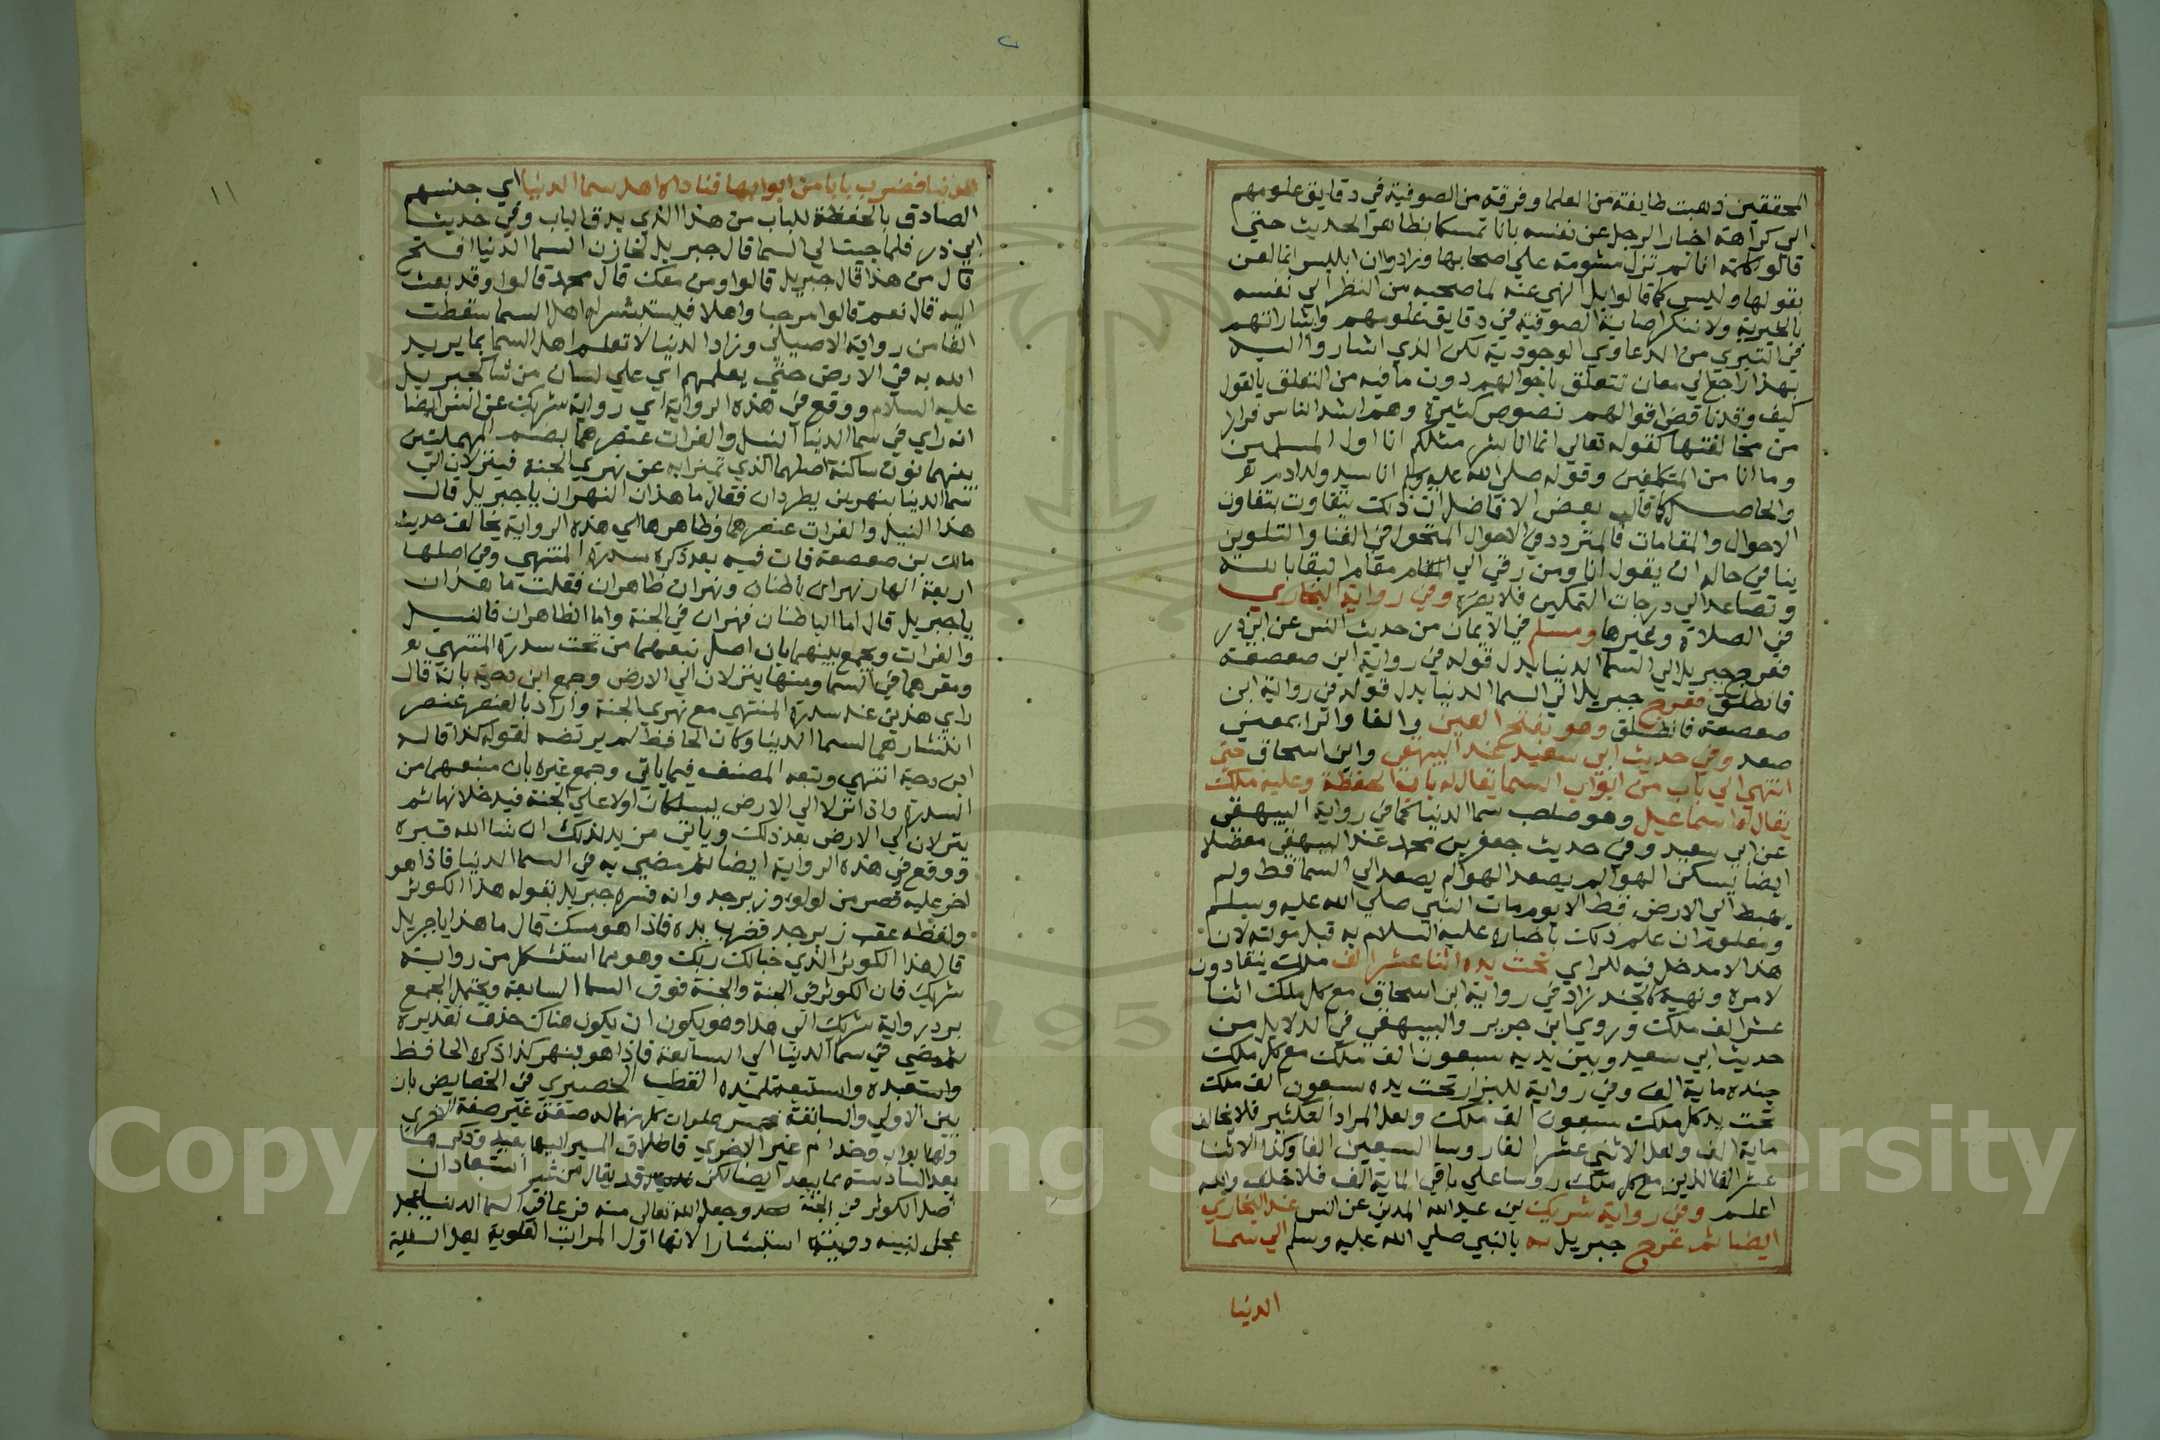 المحققين ذهبت طايفة من العلما وفرقة من الصوفية في دقايق علومهم
الي كراهة اخبار الرجل عن نفسه بانا تمسكا بظاهر الحديث حتي
قالوا كلمة انا لم تزل مشومة علي اصحابها وزادوا ان ابليس انما لعن
بقولها وليس كما قالوا بل النهي عنه لما صحبه من النظر الي نفسه
بالخيرية ولا ننكر اصابة الصوفية في دقايق علومهم واشاراتهم
في التبري من الدعاوي الوجودية لكن الذي اشاروا اليه
بهذا راجع الي معان تتعلق باحوالهم دون ما فيه من التعلق بالقول
كيف وقد ناقض اقوالهم نصوص كثيرة وهم اشد الناس فرارا
من مخالفتها كقوله تعالي انما انا بشر مثلكم انا اول المسلمين
وما انا من المتكلفين وقوله صلى الله عليه وسلم انا سيد ولد ادم
والحاصل كما قال بعض الافاضل ان ذلك يتفاوت بتفاوت
الاحوال والمقامات فالمتردد في الاحوال المتحول في الفنا والتلوين
ينافي حاله ان يقول انا ومن رقي الي مقام البقا بالله
وتصاعد الي درجات التمكين فلا يضره وفي رواية البخاري
في الصلاة وغيرها ومسلم في الايمان من حديث انس عن ابي ذر
فعرج جبريل الي السما الدنيا بدل قوله في رواية ابن صعصعة
فانطلق فعرج جبريل الي السما الدنيا بدل قوله في رواية ابن
صعصعة فانطلق وهو بفتح العين والفا والرا بمعني
صعد وفي حديث ابي سعيد عند البيهقي وابن اسحاق حتى
انتهي الي باب من ابواب السما يقال له باب الحفظة وعليه ملك
يقال له اسماعيل وهو صاحب سما الدنيا كما في رواية البيهقي
عن ابي سعيد وفي حديث جعفر بن محمد عند البيهقي معضلا
ايضا يسكن الهوا لم يصعد الي السما قط ولم
يهبط الي الارض قط الا يوم مات النبي صلي الله عليه وسلم
ومعلوم ان علم ذلك باخباره عليه السلام به قبل موته لان
هذا لا مدخل فيه للراي تحت يده اثنا عشر الف ملك ينقادون
لامره ونهيه كالجند زاد في رواية ابن اسحاق مع كل ملك اثنا
عشر الف ملك وروي ابن جرير والبيهقي في الدلايل من
حديث ابي سعيد وبين يديه سبعون الف ملك مع كل ملك
جنده ماية الف وفي رواية للبزار تحت يده سبعون الف ملك
تحت يد كل ملك سبعون الف ملك ولعل المراد التكثير فلا يخالف
ماية الف ولعل الاثني عشر الفا روسا السبعين الفا وكذا الاثنا
عشر الفا الذين مع كل ملك روسا علي باقي الماية الف فلا خلف والله
اعلم وفي رواية شريك بن عبد الله المدني عن انس عند البخاري
ايضا ثم عرج جبريل به بالنبي صلي الله عليه وسلم الي سما
الدنيا
١١
الدنيا فضرب بابا من ابوابها فناداه اهل سما الدنيا اي جنسهم
الصادق بالحفظة للباب من هذا الذي يدق الباب وفي حديث
ابي ذر فلما جيت الي السما قال جبريل لخازن السما الدنيا افتح
قال من هذا قال جبريل قالوا ومن معك قال محمد قالوا وقد بعث
اليه قال نعم قالوا مرحبا واهلا فيستبشر به اهل السما سقطت
الفا من رواية الاصيلي وزاد الدنيا لا تعلم اهل السما بما يريد
الله به في الارض حتي يعلمهم اي علي لسان من شا كجبريل
عليه السلام ووقع في هذه الرواية اي رواية شريك عن انس ايضا
انه راي في سما الدنيا النيل والفرات عنصرهما بضم المهملتين
بينهما نون ساكنة اصلهما الذي تميزا به عن نهري الجنة فينزلان الي
سما الدنيا بنهرين يطردان فقال ما هذان النهران يا جبريل قال
هذا النيل والفرات عنصرهما وظاهرها اي هذه الرواية يخالف حديث
مالك بن صعصعة فان فيه بعد ذكره سدرة المنتهي وفي اصلها
اربعة انهار نهران باطنان ونهران ظاهران فقلت ما هذان
يا جبريل قال اما الباطنان فنهران في الجنة واما الظاهران فالنيل
والفرات ويجمع بينهما بان اصل نبعهما من تحت سدرة المنتهي
ومقرهما في السما ومنها ينزلان الي الارض وجمع ابن دحية بانه قال
راي هذين عند سدرة المنتهي مع نهري الجنة واراد بالعنصر عنصر
انتشارهما لسما الدنيا وكان الحافظ لم يرتضه لقوله كذا قاله
ابن دحية انتهي وتبعه المصنف فيما ياتي وجمع غيره بان منبعهما من
السدرة واذا نزلا الي الارض يسلكان اولا علي الجنة فيدخلانها ثم
ينزلان الي الارض بعد ذلك وياتي مزيد لذلك ان شا الله قريبا
ووقع في هذه الرواية ايضا ثم مضي به في السما الدنيا فاذا هو
اخر عليه قصر من لولو وزبرجد وانه فسره جبريل بقوله هذا الكوثر
ولفظه عقب زبرجد فضرب يده فاذا هو مسك قال ما هذا يا جبريل
قال هذا الكوثر الذي خبا لك ربك وهو مما استشكل من رواية
شريك فان الكوثر في الجنة والجنة فوق السما السابعة ويحتمل الجمع
برد رواية شريك الي هذا وهو يكون ان يكون هناك حذف تقديره
ثم مضي في سما الدنيا الي السابعة فاذا هو بنهر كذا ذكره الحافظ
واستبعده تلميذه القطب الخصيري في الخصايص بان
بين الاولي والسابعة خمس سموات كل منها له صفة غير صفة الاخري
ولها ابواب وخدام غير الاخري فاطلاق السير اليها بعيد
بعد السادسة مما يبعد ايضا لكن قد يقال من غير استبعاد ان
اصل الكوثر في الجنة وجعل الله تعالي منه فرعا في السما الدنيا
عجل لنبيه رويته استبشارا لانها اول المراتب العلوية بعد السفلية